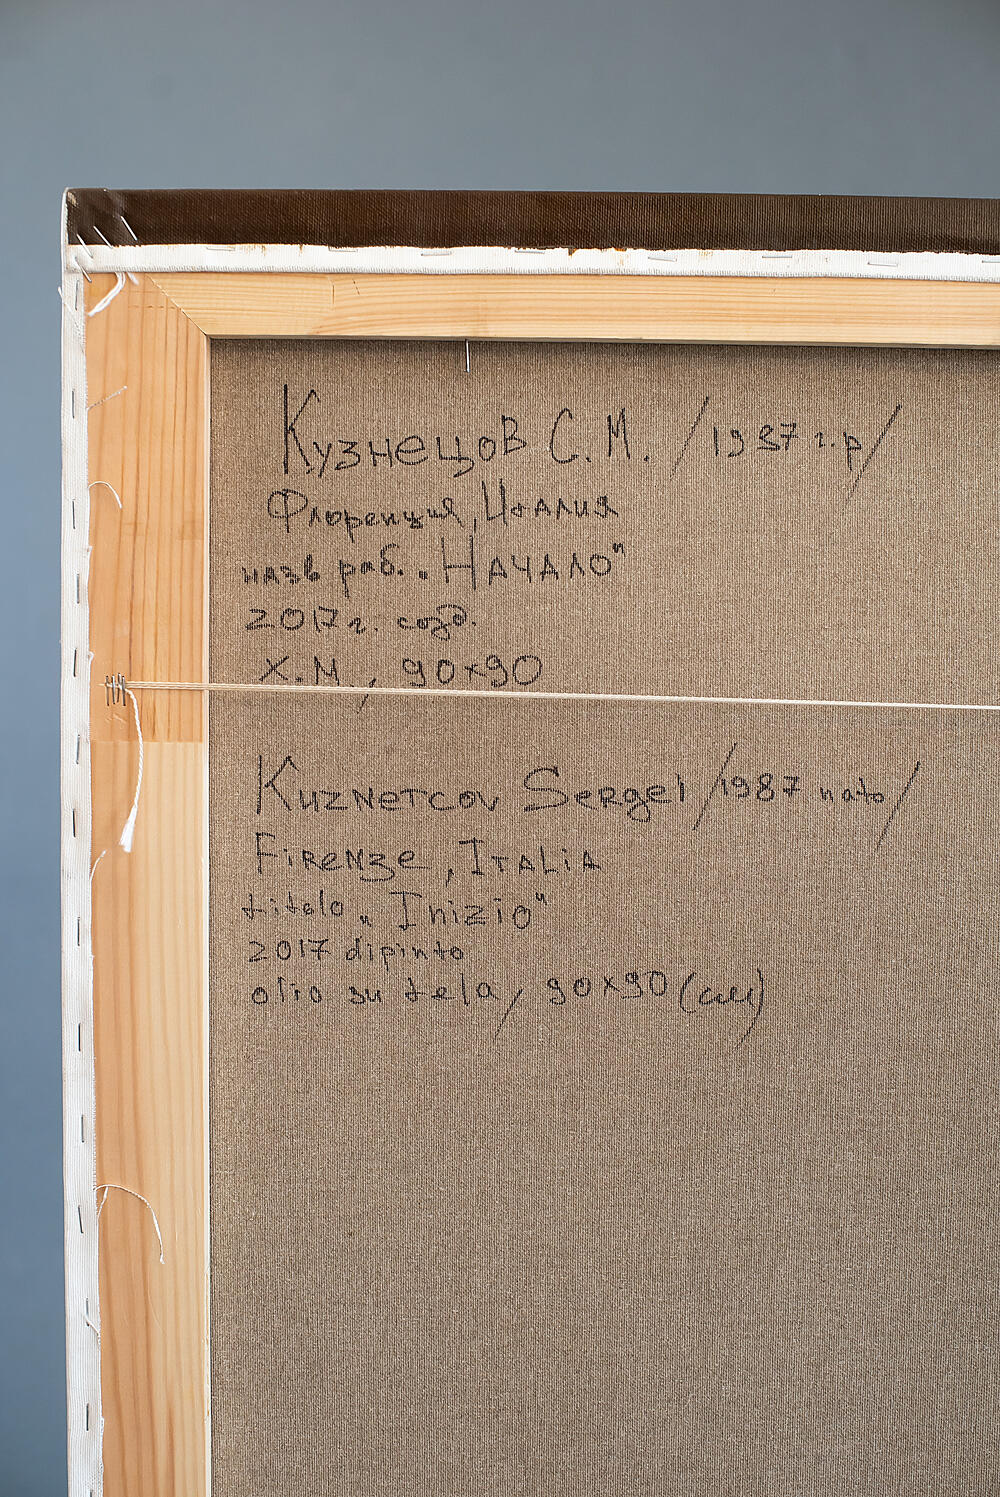 Кузнецов С. М. /1987 г.р/
Флоренция, Италия
назв раб. „Начало"
2017г. созд.
Х.М, 90x90
Kuznetcov Sergei /1987 nato/
Firenze, Italia
titolo „Inizio"
2017 dipinto
olio su tela, 90x90 (см)